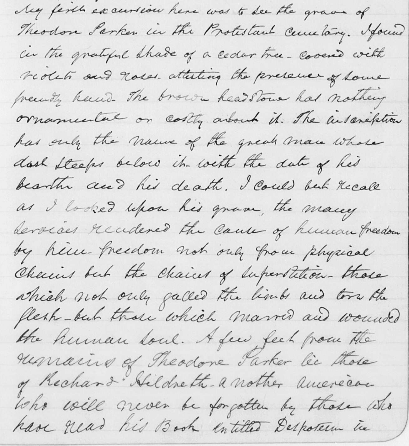 My first excursion here was to see the grave of
Theodore Parker in the Protestant cemetary. I found
in the grateful shade of a cedar tree - covered with
violets and roses attesting the presence of some
friendly hand. The brown headstone has nothing
ornamental or costly about it. The inscription
has only the name of the great man whose
dust sleeps below it with the date of his
bearth and his death. I could but recall
as I looked upon his grave, the many
services rendered the cause of human freedom
by him - freedom not only from physical
chains but the chains of superstition - those
which not only galled the limbs and tore the
flesh - but those which marred and wounded
the human soul. A few feet from the
remains of Theodore Parker lie those
of Richard Hildreth another American
who will never be forgotten by those who
have read his Book entitled Despotism in